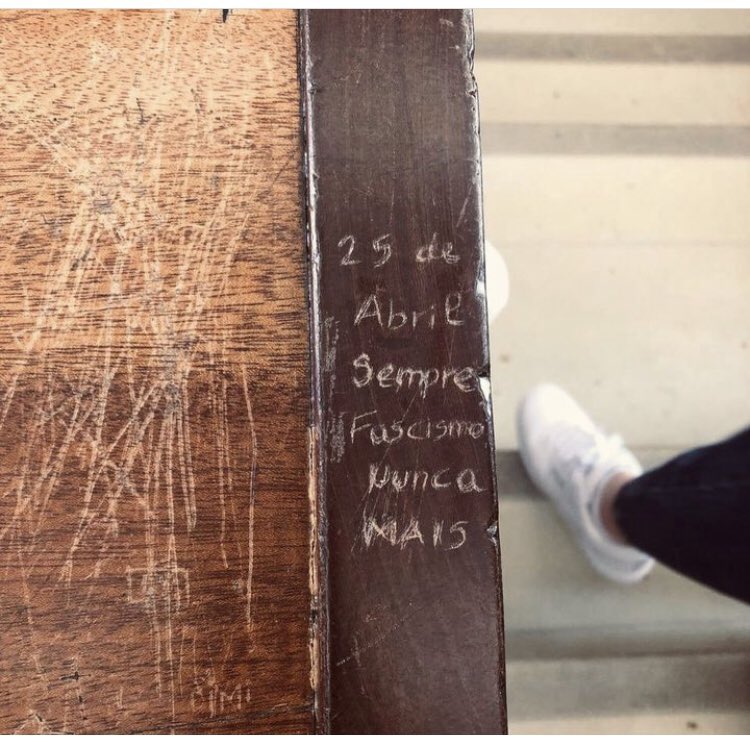 25 de
Abril
Sempre
Fascismo
Nunca
MAIS